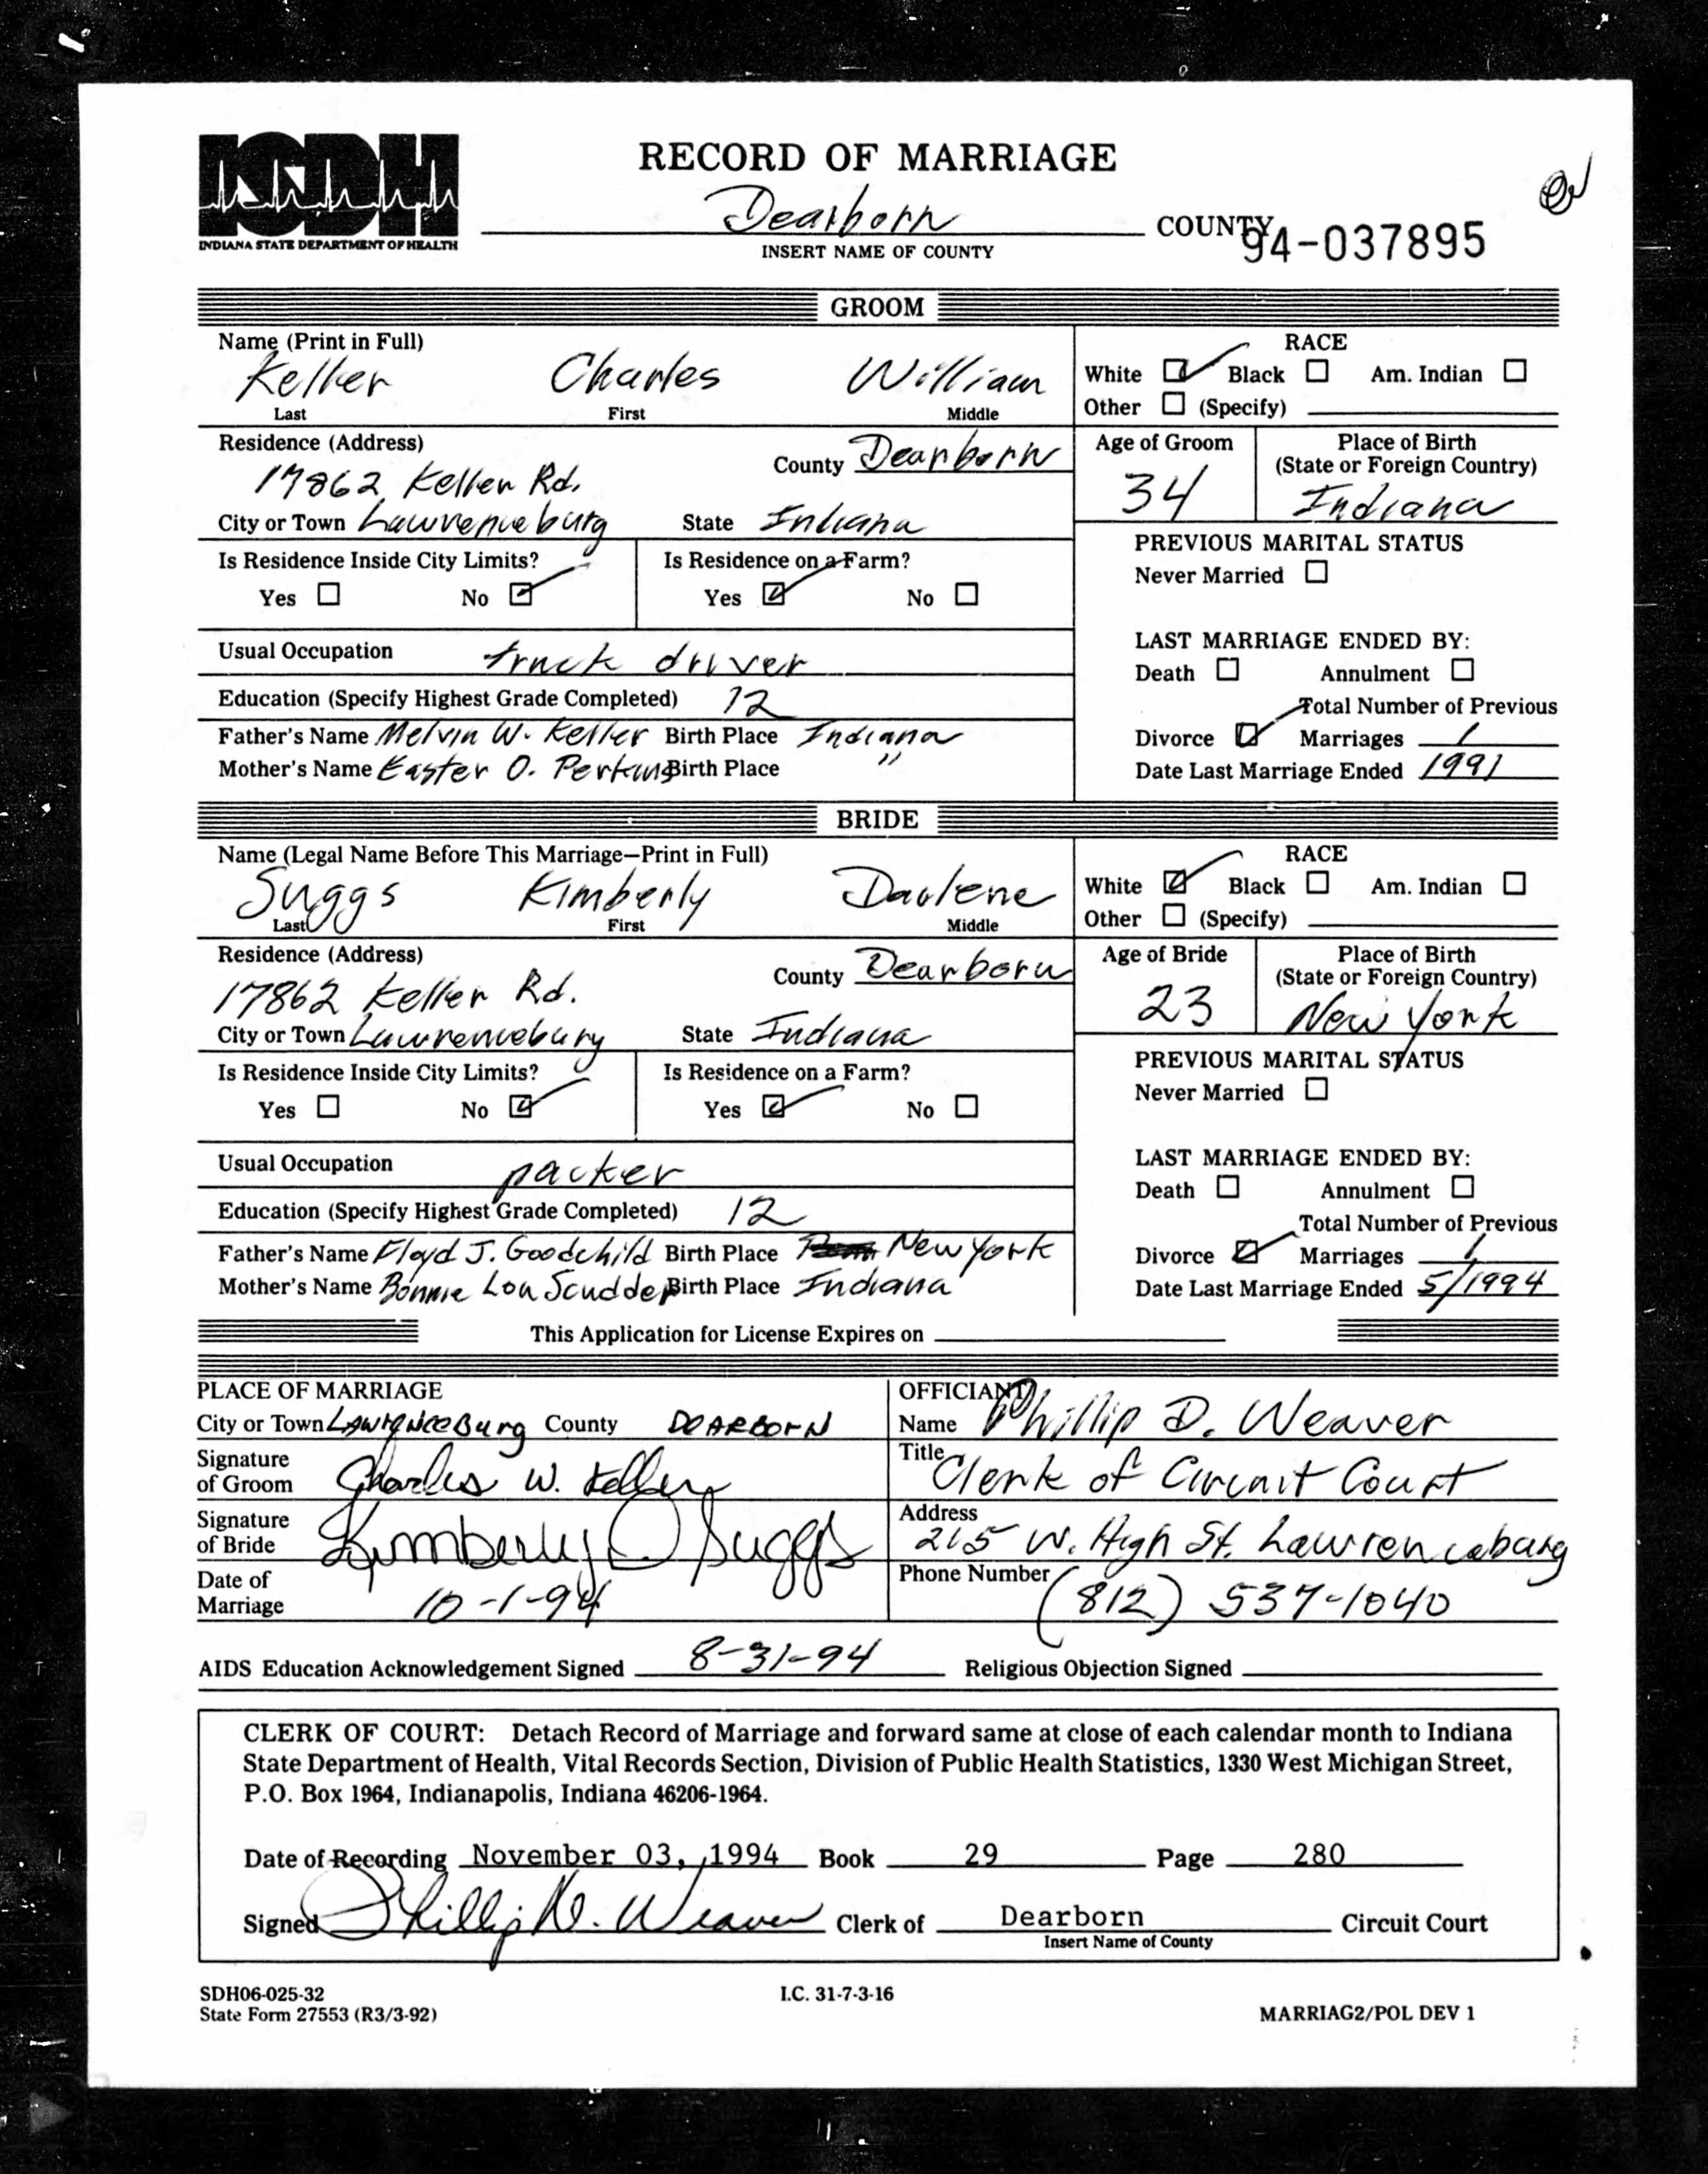 ISDH
INDIANA STATE DEPARTMENT OF HEALTH
RECORD OF MARRIAGE
Dearborn COUNTY
INSERT NAME OF COUNTY
94-037895
GROOM
Name (Print in Full)
Keller Charles William
Last First Middle
RACE
White ☑ Black ☐ Am. Indian ☐
Other ☐ (Specify)
Residence (Address)
17862 Keller Rd.
County Dearborn
City or Town Lawrenceburg State Indiana
Age of Groom
34
Place of Birth
(State or Foreign Country)
Indiana
Is Residence Inside City Limits?
Yes ☐ No ☑
Is Residence on a Farm?
Yes ☑ No ☐
PREVIOUS MARITAL STATUS
Never Married ☐
Usual Occupation truck driver
Education (Specify Highest Grade Completed) 12
Father's Name Melvin W. Keller Birth Place Indiana
Mother's Name Easter O. Perkins Birth Place "
LAST MARRIAGE ENDED BY:
Death ☐ Annulment ☐
Total Number of Previous
Divorce ☑ Marriages 1
Date Last Marriage Ended 1991
BRIDE
Name (Legal Name Before This Marriage—Print in Full)
Suggs Kimberly Darlene
Last First Middle
RACE
White ☑ Black ☐ Am. Indian ☐
Other ☐ (Specify)
Residence (Address)
17862 Keller Rd.
County Dearborn
City or Town Lawrenceburg State Indiana
Age of Bride
23
Place of Birth
(State or Foreign Country)
New York
Is Residence Inside City Limits?
Yes ☐ No ☑
Is Residence on a Farm?
Yes ☑ No ☐
PREVIOUS MARITAL STATUS
Never Married ☐
Usual Occupation packer
Education (Specify Highest Grade Completed) 12
Father's Name Floyd J. Goodchild Birth Place New York
Mother's Name Bonnie Lou Scudder Birth Place Indiana
LAST MARRIAGE ENDED BY:
Death ☐ Annulment ☐
Total Number of Previous
Divorce ☑ Marriages 1
Date Last Marriage Ended 5/1994
This Application for License Expires on
PLACE OF MARRIAGE
City or Town Lawrenceburg County Dearborn
Signature
of Groom Charles W. Keller
Signature
of Bride Kimberly D Suggs
Date of
Marriage 10-1-94
OFFICIANT
Name Phillip D. Weaver
Title Clerk of Circuit Court
Address
215 W. High St. Lawrenceburg
Phone Number (812) 537-1040
AIDS Education Acknowledgement Signed 8-31-94 Religious Objection Signed
CLERK OF COURT: Detach Record of Marriage and forward same at close of each calendar month to Indiana
State Department of Health, Vital Records Section, Division of Public Health Statistics, 1330 West Michigan Street,
P.O. Box 1964, Indianapolis, Indiana 46206-1964.
Date of Recording November 03, 1994 Book 29 Page 280
Signed Phillip D. Weaver Clerk of Dearborn Circuit Court
Insert Name of County
SDH06-025-32 I.C. 31-7-3-16
State Form 27553 (R3/3-92) MARRIAG2/POL DEV 1